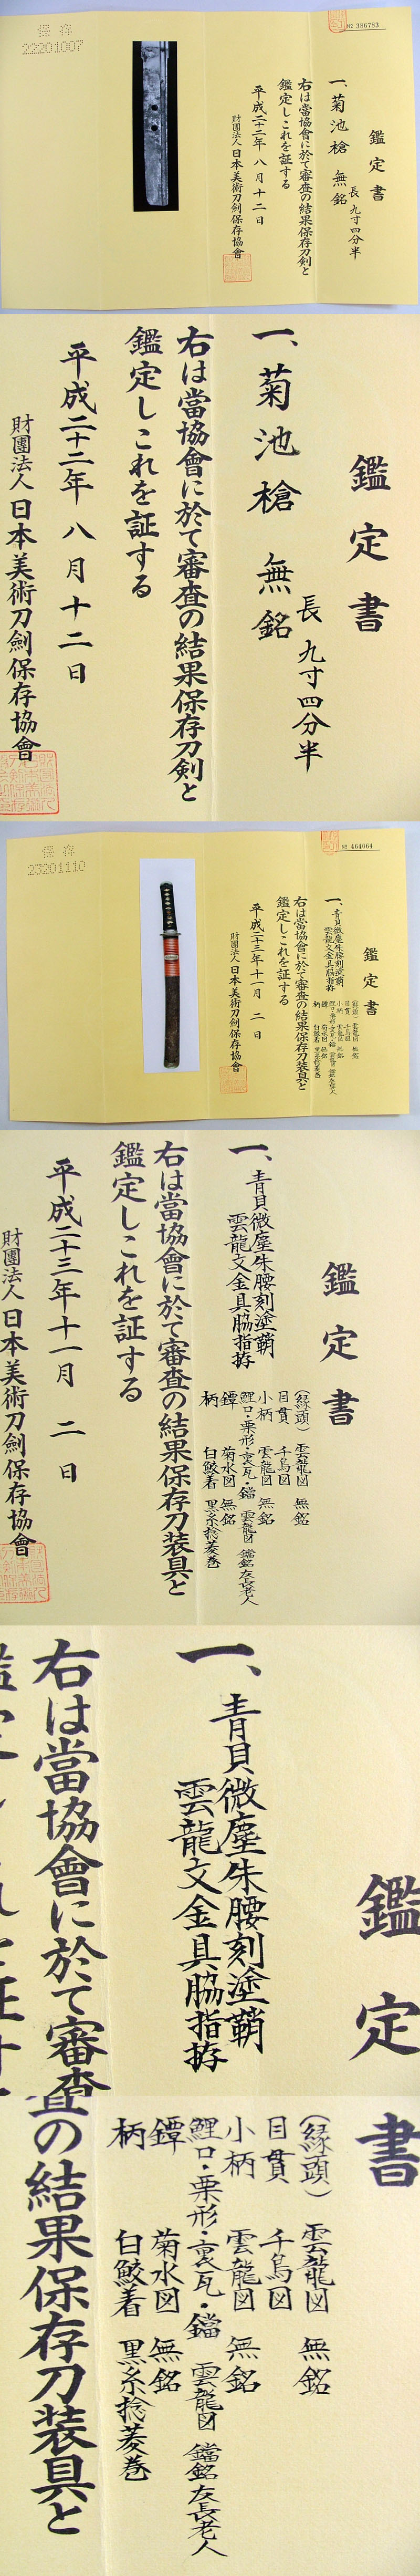 保存
22201007
№ 386783
鑑定書
一、菊池槍 無銘
長 九寸四分半
右は當協會に於て審査の結果保存刀剣と
鑑定しこれを証する
平成二十二年 八月十二日
財團法人日本美術刀劍保存協會
鑑定書
一、菊池槍 無銘
長 九寸四分半
右は當協會に於て審査の結果保存刀剣と
鑑定しこれを証する
平成二十二年 八月十二日
財團法人日本美術刀劍保存協會
保存
23201110
№ 464064
鑑定書
一、青貝微塵朱腰刻塗鞘
雲龍文金具脇指拵
(縁頭) 雲龍図 無銘
目貫 千鳥図
小柄 雲龍図 無銘
鯉口・栗形・裏瓦・鐺 雲龍図 鐺銘 友長老人
鐔 菊水図 無銘
柄 白鮫着 黒糸捻菱巻
右は當協會に於て審査の結果保存刀装具と
鑑定しこれを証する
平成二十三年十一月 二日
財團法人日本美術刀劍保存協會
鑑定書
一、青貝微塵朱腰刻塗鞘
雲龍文金具脇指拵
(縁頭) 雲龍図 無銘
目貫 千鳥図
小柄 雲龍図 無銘
鯉口・栗形・裏瓦・鐺 雲龍図 鐺銘 友長老人
鐔 菊水図 無銘
柄 白鮫着 黒糸捻菱巻
右は當協會に於て審査の結果保存刀装具と
鑑定しこれを証する
平成二十三年十一月 二日
財團法人日本美術刀劍保存協會
鑑定書
一、青貝微塵朱腰刻塗鞘
雲龍文金具脇指拵
(縁頭) 雲龍図 無銘
目貫 千鳥図
小柄 雲龍図 無銘
鯉口・栗形・裏瓦・鐺 雲龍図 鐺銘 友長老人
鐔 菊水図 無銘
柄 白鮫着 黒糸捻菱巻
右は當協會に於て審査の結果保存刀装具と